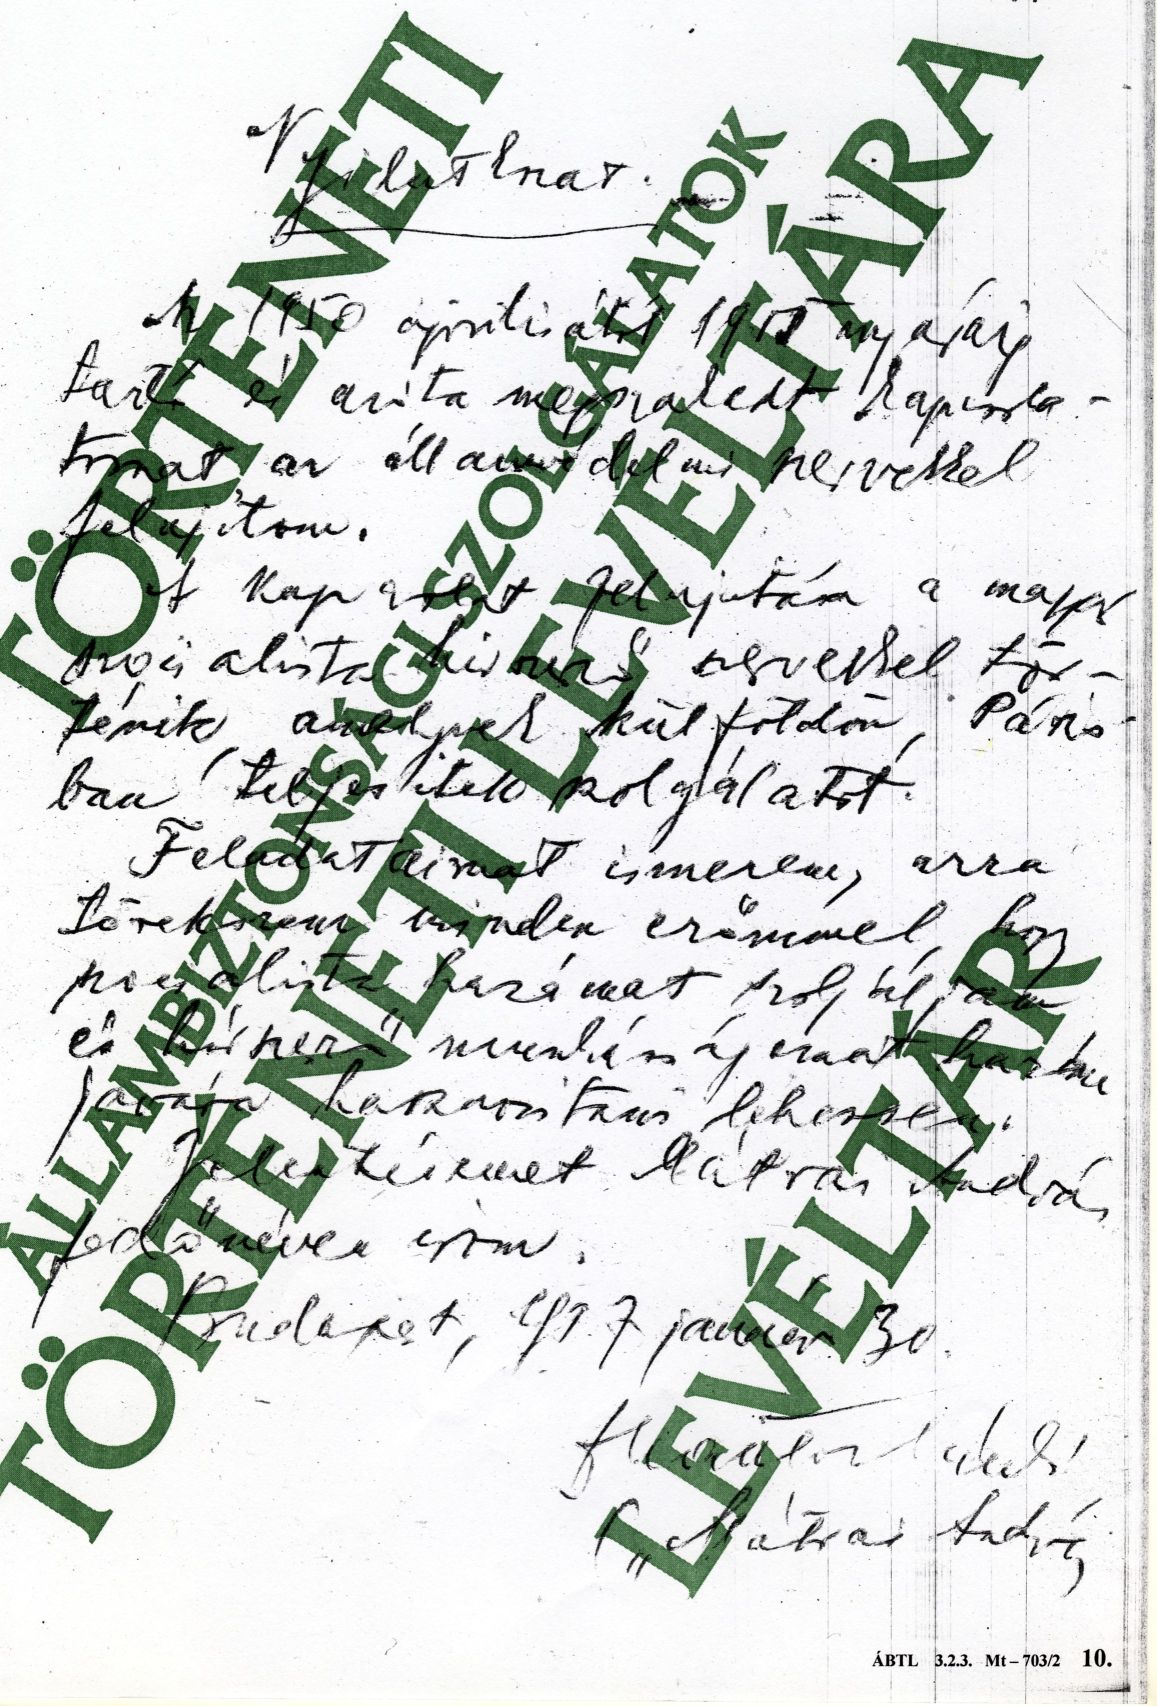 Nyilatkozat.
Az 1950 áprilisától 1951 nyaráig
tartó és azóta megszakadt kapcsola-
tomat az államvédelmi szervekkel
felujítom.
A kapcsolat felujitása a magyar
szocialista hirszerző szervekkel tör-
ténik amelyek külföldön, Páris-
ban teljesitek szolgálatot.
Feladataimat ismerem, arra
törekszem minden erőmmel, hogy
szocialista hazámat szolgáljam
és hirszerző munkásságomat hazám
javára hasznositani lehessen.
Jelentéseimet Mátrai András
fedőnéven irom.
Budapest, 1957 január 30.
László
„Mátrai András
TÖRTÉNETI
ÁLLAMBIZTONSÁGI SZOLGÁLATOK
TÖRTÉNETI LEVÉLTÁRA
LEVÉLTÁR
ÁBTL 3.2.3. Mt–703/2 10.